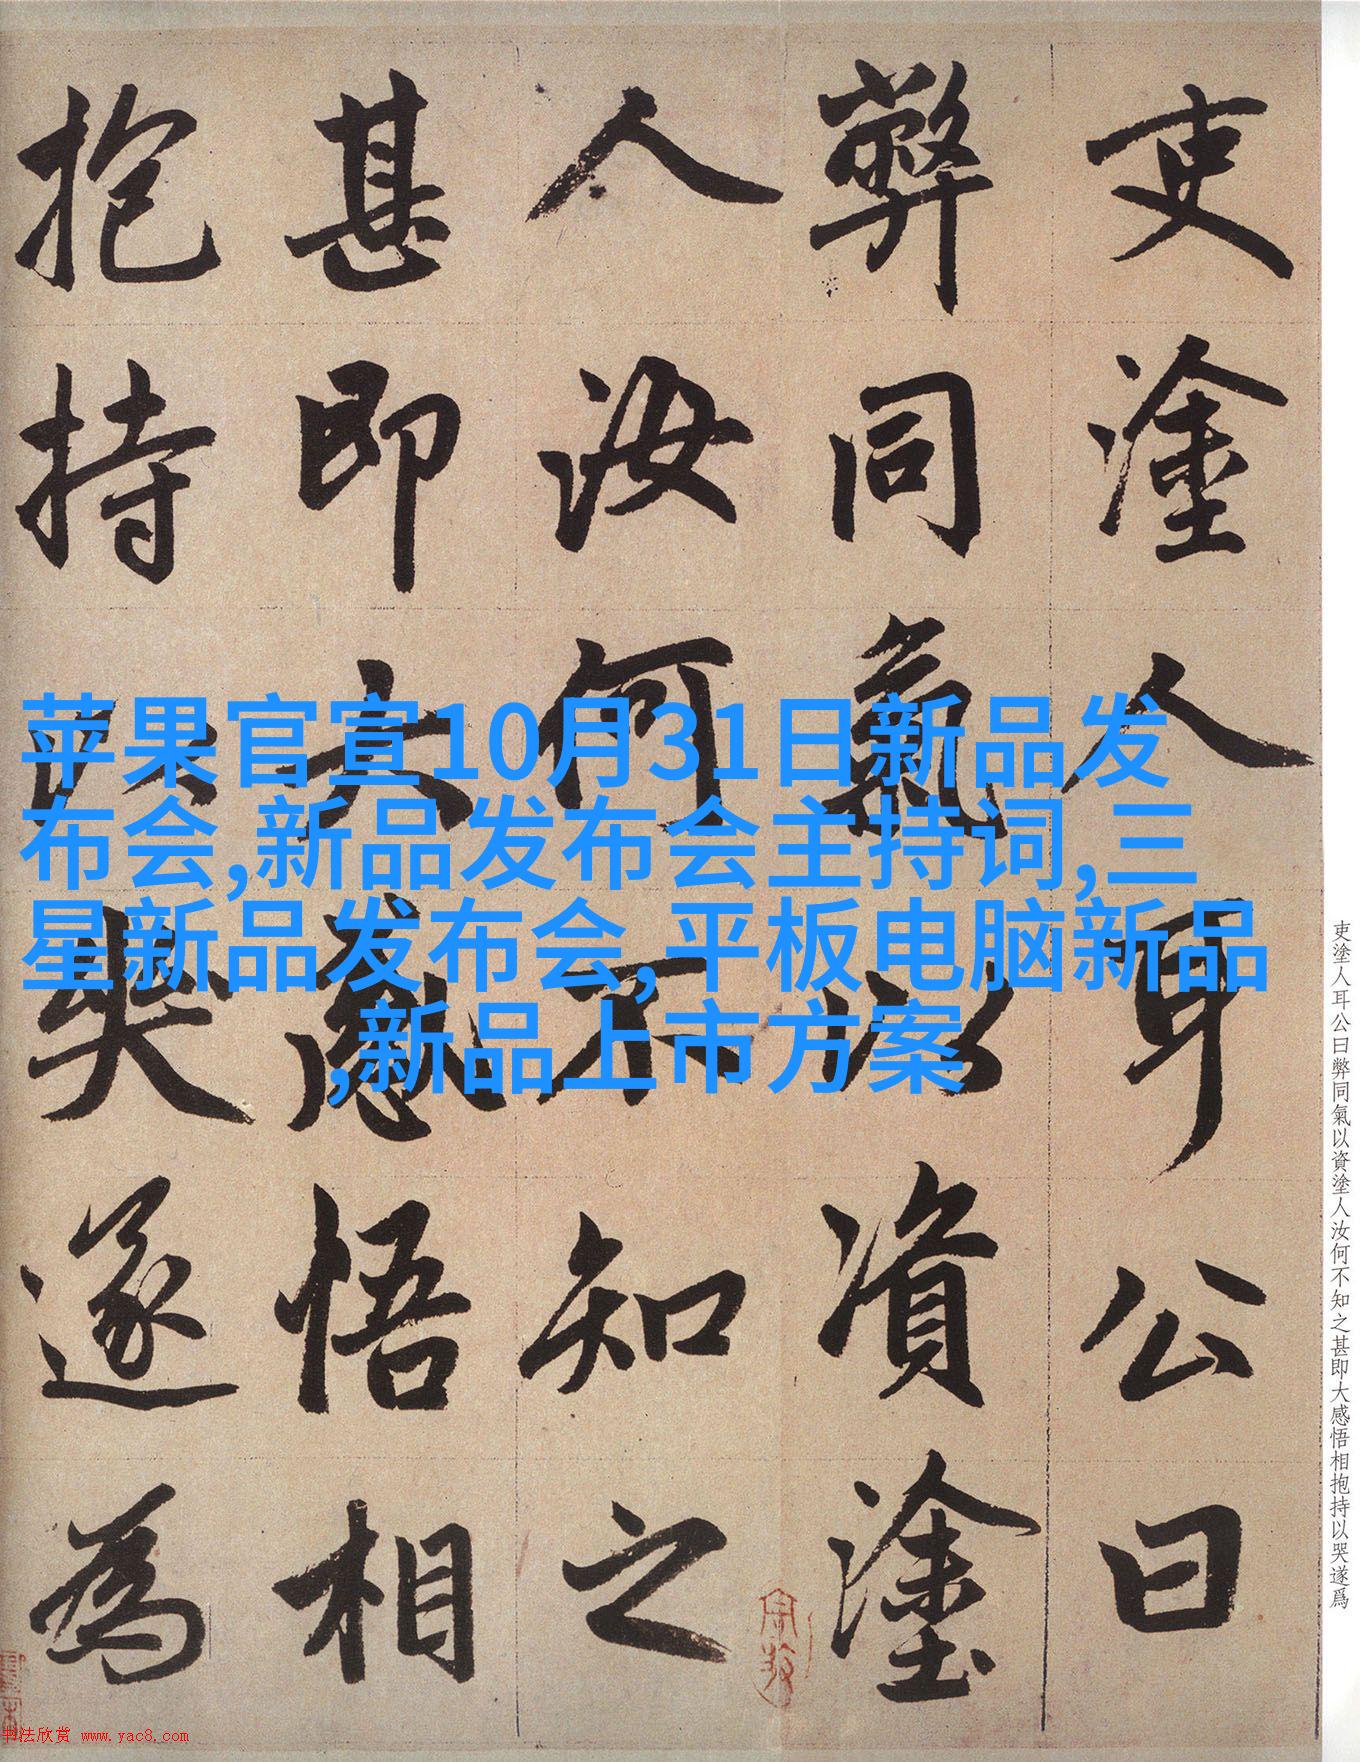 吏塗人耳公曰
弊同氣以資塗
人汝何不知之
甚即大感悟相
抱持以哭遂為
苹果官宣10月31日新品发
布会,新品发布会主持词,三
星新品发布会,平板电脑新品
,新品上市方案
吏塗人耳公曰弊同氣以資塗人汝何不知之甚即大感悟相抱持以哭遂爲
书法欣赏 www.yac8.com